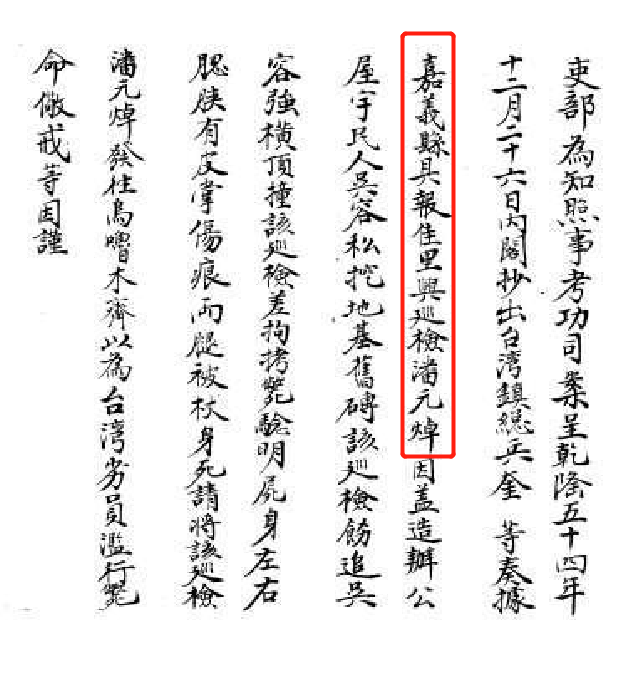 吏部為知照事考功司案呈乾隆五十四年
十二月二十六日內閣抄出台湾鎮總兵奎 等奏據
嘉義縣具報佳里興巡檢潘元焯因盖造辦公
屋宇民人吳容松挖地基舊磚該巡檢飭追吳
容強橫頂撞該巡檢差拘拷斃驗明屍身左右
腮腴有皮掌傷痕両腿被杖身死請將該巡檢
潘元焯發往烏嚕木齊以為台湾劣員濫行斃
命儆戒等因謹